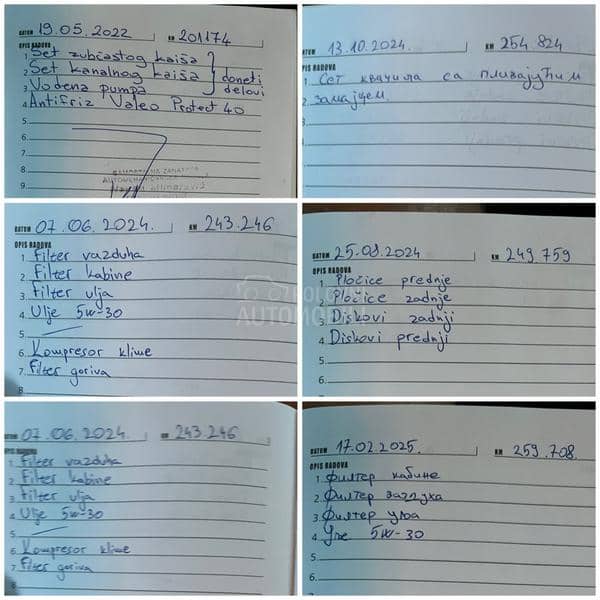 DATUM 19.05.2022 KM 201174
OPIS RADOVA
1. Set zubčastog kaiša
2. Set kanalnog kaiša } doneti
3. Vodena pumpa delovi
4. Antifriz Valeo Protect 40
5.
6.
7.
8.
9.
DATUM 13.10.2024. KM 254 824
OPIS RADOVA
1. Сет квачила са пливајућим
2. замајцем.
3.
DATUM 07.06.2024. KM 243.246
OPIS RADOVA
1. Filter vazduha
2. Filter kabine
3. Filter ulja
4. Ulje 5w-30
5.
6. Kompresor klime
7. Filter goriva
8.
DATUM 25.08.2024 KM 249 759
OPIS RADOVA
1. Pločice prednje
2. Pločice zadnje
3. Diskovi zadnji
4. Diskovi prednji
5.
6.
DATUM 07.06.2024. KM 243.246
OPIS RADOVA
1. Filter vazduha
2. Filter kabine
3. Filter ulja
4. Ulje 5w-30
5.
6. Kompresor klime
7. Filter goriva
DATUM 17.02.2025. KM 259.708.
OPIS RADOVA
1. Филтер кабине
2. Филтер ваздуха
3. Филтер уља
4. Уље 5W-30
5.
6.